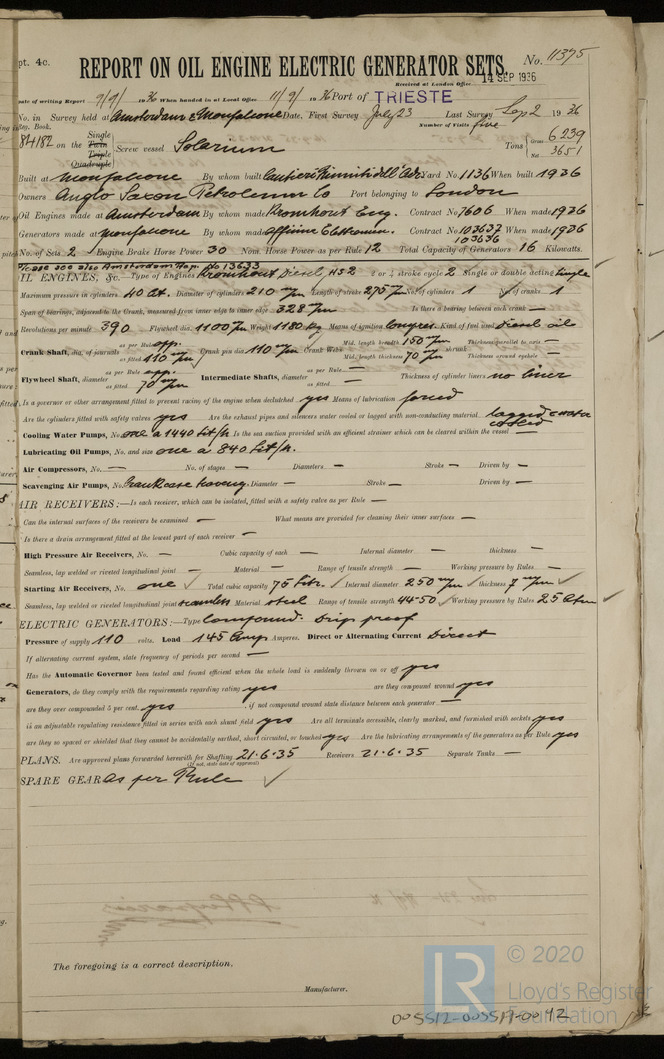 pt. 4c.
REPORT ON OIL ENGINE ELECTRIC GENERATOR SETS. No. 11375
Received at London Office 14 SEP 1936
Date of writing Report 9/9/1936 When handed in at Local Office 11/9/1936 Port of TRIESTE
No. in Survey held at Amsterdam & Monfalcone Date, First Survey July 23 Last Survey Sep 2 1936
Reg. Book. Number of Visits five
84182 on the Single Twin Triple Quadruple Screw vessel Solarium Tons Gross 6239 Net 3651
Built at Monfalcone By whom built Cantieri Riuniti dell' Adr. Yard No. 1136 When built 1936
Owners Anglo Saxon Petroleum Co Port belonging to London
Oil Engines made at Amsterdam By whom made Kromhout Eng. Contract No. 7606 When made 1936
Generators made at Monfalcone By whom made Contract No. 103637 103636 When made 1936
No. of Sets 2 Engine Brake Horse Power 30 Nom. Horse Power as per Rule 12 Total Capacity of Generators 16 Kilowatts.
Please see also Amsterdam Rep. No 13633
OIL ENGINES, &c.—Type of Engines Kromhout Diesel HS2 2 or 4 stroke cycle 2 Single or double acting Single
Maximum pressure in cylinders 40 At. Diameter of cylinders 210 m/m Length of stroke 275 m/m No. of cylinders 1 No. of cranks 1
Span of bearings, adjacent to the Crank, measured from inner edge to inner edge 328 m/m Is there a bearing between each crank —
Revolutions per minute 390 Flywheel dia. 1100 m/m Weight 1180 kg Means of ignition compres. Kind of fuel used Diesel oil
Crank Shaft, dia. of journals as per Rule app. as fitted 110 m/m Crank pin dia. 110 m/m Crank Webs Mid. length breadth 150 m/m Mid. length thickness 70 m/m shrunk Thickness parallel to axis — Thickness around eyehole —
Flywheel Shaft, diameter as per Rule app. as fitted 70 m/m Intermediate Shafts, diameter as per Rule — as fitted — Thickness of cylinder liners no liner
Is a governor or other arrangement fitted to prevent racing of the engine when declutched yes Means of lubrication forced
Are the cylinders fitted with safety valves yes Are the exhaust pipes and silencers water cooled or lagged with non-conducting material lagged & water cooled
Cooling Water Pumps, No. one a 1440 Lit/h Is the sea suction provided with an efficient strainer which can be cleared within the vessel —
Lubricating Oil Pumps, No. and size one a 840 Lit/h.
Air Compressors, No. — No. of stages — Diameters — Stroke — Driven by —
Scavenging Air Pumps, No. Crankcase scaveng. Diameter — Stroke — Driven by —
AIR RECEIVERS:—Is each receiver, which can be isolated, fitted with a safety valve as per Rule —
Can the internal surfaces of the receivers be examined — What means are provided for cleaning their inner surfaces —
Is there a drain arrangement fitted at the lowest part of each receiver —
High Pressure Air Receivers, No. — Cubic capacity of each — Internal diameter — thickness —
Seamless, lap welded or riveted longitudinal joint — Material — Range of tensile strength — Working pressure by Rules —
Starting Air Receivers, No. one Total cubic capacity 75 Litr. Internal diameter 250 m/m thickness 7 m/m
Seamless, lap welded or riveted longitudinal joint seamless Material steel Range of tensile strength 44-50 Working pressure by Rules 25 Atm
ELECTRIC GENERATORS:—Type Compound. Drip proof
Pressure of supply 110 volts. Load 145 Amp Amperes. Direct or Alternating Current Direct
If alternating current system, state frequency of periods per second —
Has the Automatic Governor been tested and found efficient when the whole load is suddenly thrown on or off yes
Generators, do they comply with the requirements regarding rating yes are they compound wound yes
are they over compounded 5 per cent. yes , if not compound wound state distance between each generator —
is an adjustable regulating resistance fitted in series with each shunt field yes Are all terminals accessible, clearly marked, and furnished with sockets yes
are they so spaced or shielded that they cannot be accidentally earthed, short circuited, or touched yes Are the lubricating arrangements of the generators as per Rule yes
PLANS. Are approved plans forwarded herewith for Shafting 21.6.35 Receivers 21.6.35 Separate Tanks —
(If not, state date of approval)
SPARE GEAR As per Rule
The foregoing is a correct description.
Manufacturer.
© 2020
LR Lloyd's Register
Foundation
005512-005519-0042